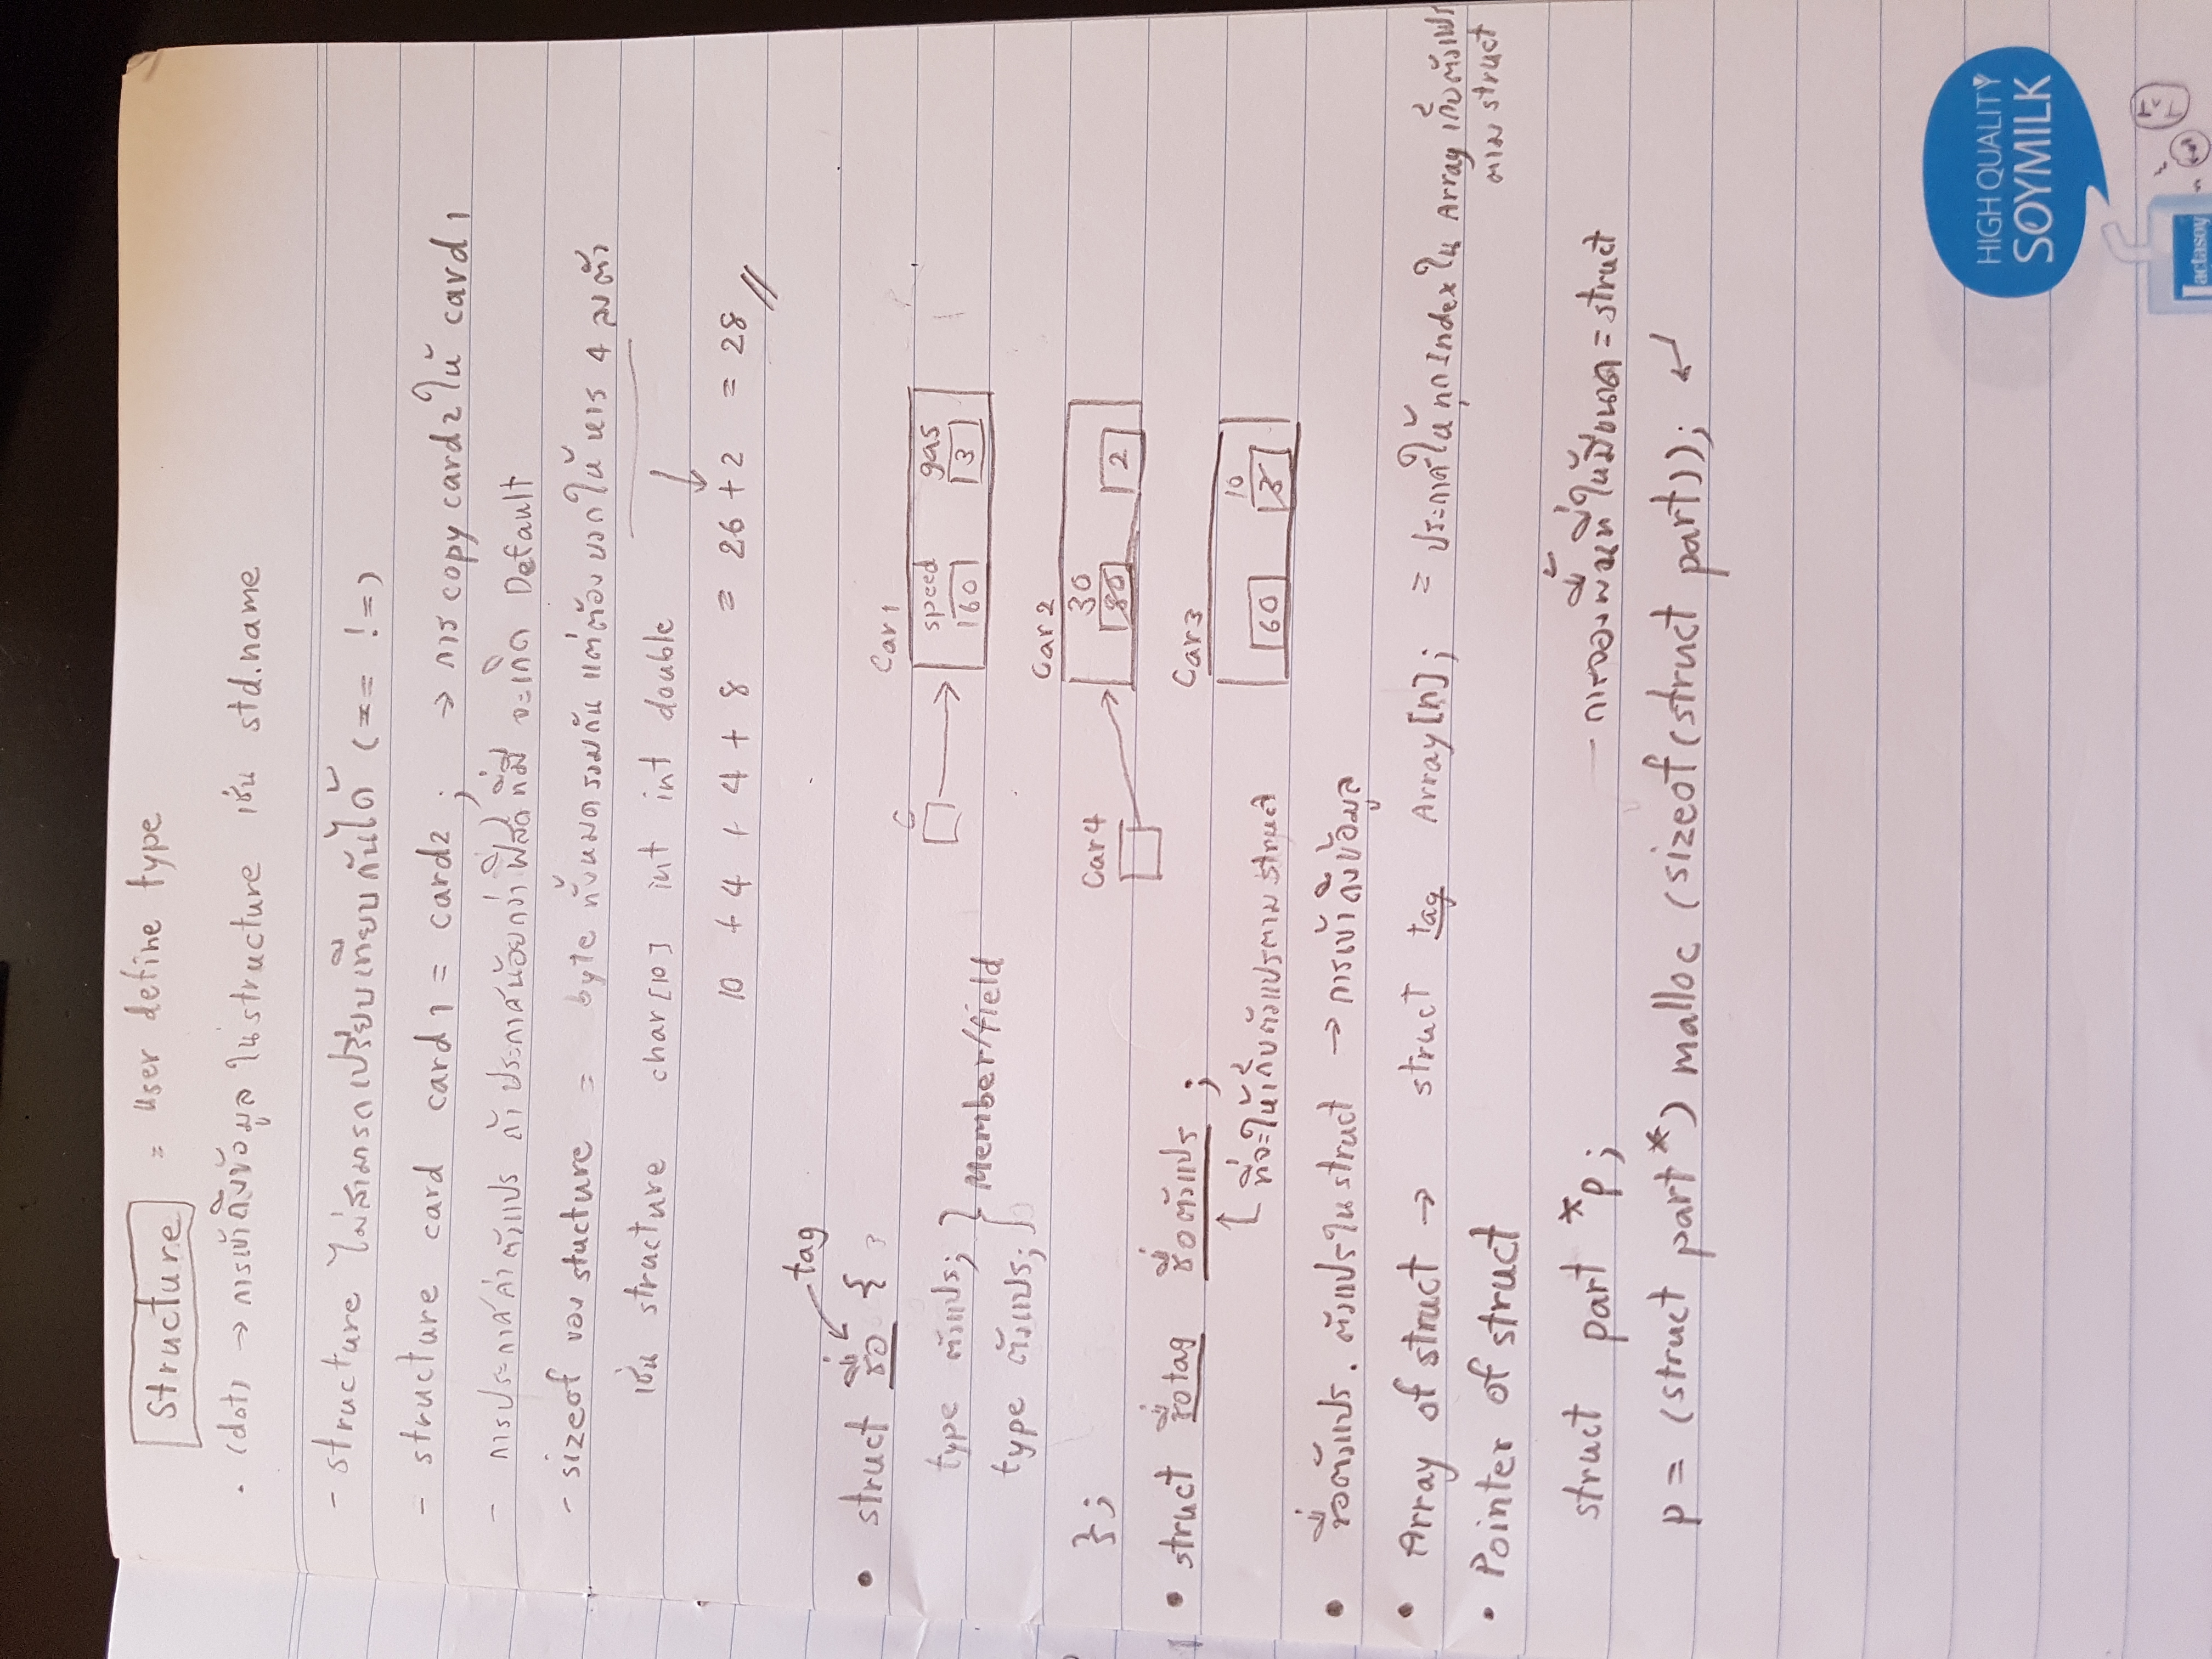 Structure = user define type
. (dot) → การเข้าถึงข้อมูล ใน structure เช่น std.name
- structure ไม่สามารถเปรียบเทียบกันได้ (== !=)
- structure card card1 = card2 ; → การ copy card2 ให้ card1
- การประกาศค่าตัวแปร ถ้าประกาศน้อยกว่าฟิลด์ที่มี จะเกิด Default
- sizeof ของ stucture = byte ทั้งหมดรวมกัน แต่ต้องบวกให้หาร 4 ลงตัว
เช่น structure char[10] int int double
10 + 4 + 4 + 8 = 26 + 2 = 28 //
tag
• struct ชื่อ {
type ตัวแปร;
type ตัวแปร;
} Member/field
};
C
Car 1
speed gas
60 3
Car 2
30
80 2
Car4
Car3
10
60 3
• struct ชื่อtag ชื่อตัวแปร ;
ที่จะให้เก็บตัวแปรตาม struct
• ชื่อตัวแปร . ตัวแปรใน struct → การเข้าถึงข้อมูล
• Array of struct → struct tag Array[n]; = ประกาศให้ทุก Index ใน Array เก็บตัวแปร
ตาม struct
• Pointer of struct
struct part *p; - การจองพื้นที่ให้มีขนาด = struct
p = (struct part*) malloc (sizeof(struct part)); ↵
HIGH QUALITY
SOYMILK
Lactasoy